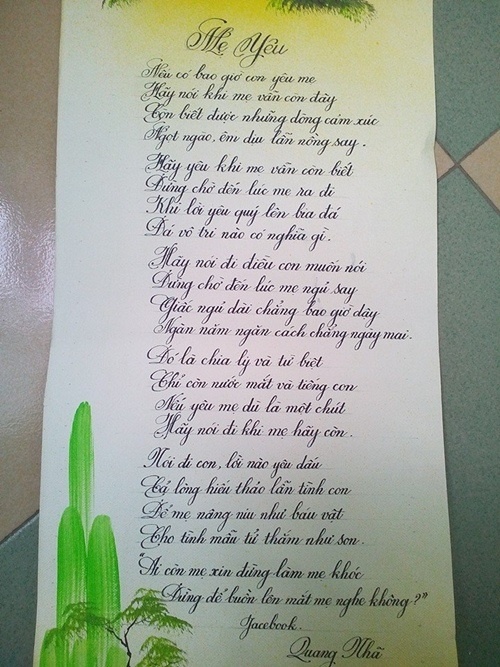 Mẹ Yêu
Nếu có bao giờ con yêu mẹ
Hãy nói khi mẹ vẫn còn đây
Còn biết được những dòng cảm xúc
Ngọt ngào, êm dịu lẫn nồng say.
Hãy yêu khi mẹ vẫn còn biết
Đừng chờ đến lúc mẹ ra đi
Khi lời yêu quý lên bia đá
Đá vô tri nào có nghĩa gì.
Hãy nói đi điều con muốn nói
Đừng chờ đến lúc mẹ ngủ say
Giấc ngủ dài chẳng bao giờ dậy
Ngàn năm ngăn cách chẳng ngày mai.
Đó là chia ly và từ biệt
Chỉ còn nước mắt và tiếng con
Nếu yêu mẹ dù là một chút
Hãy nói đi khi mẹ hãy còn.
Nói đi con, lời nào yêu dấu
Cả lòng hiếu thảo lẫn tình con
Để mẹ nâng niu như báu vật
Cho tình mẫu tử thắm như son.
"Ai còn mẹ xin đừng làm mẹ khóc
Đừng để buồn lên mắt mẹ nghe không?"
Facebook.
Quang Nhã